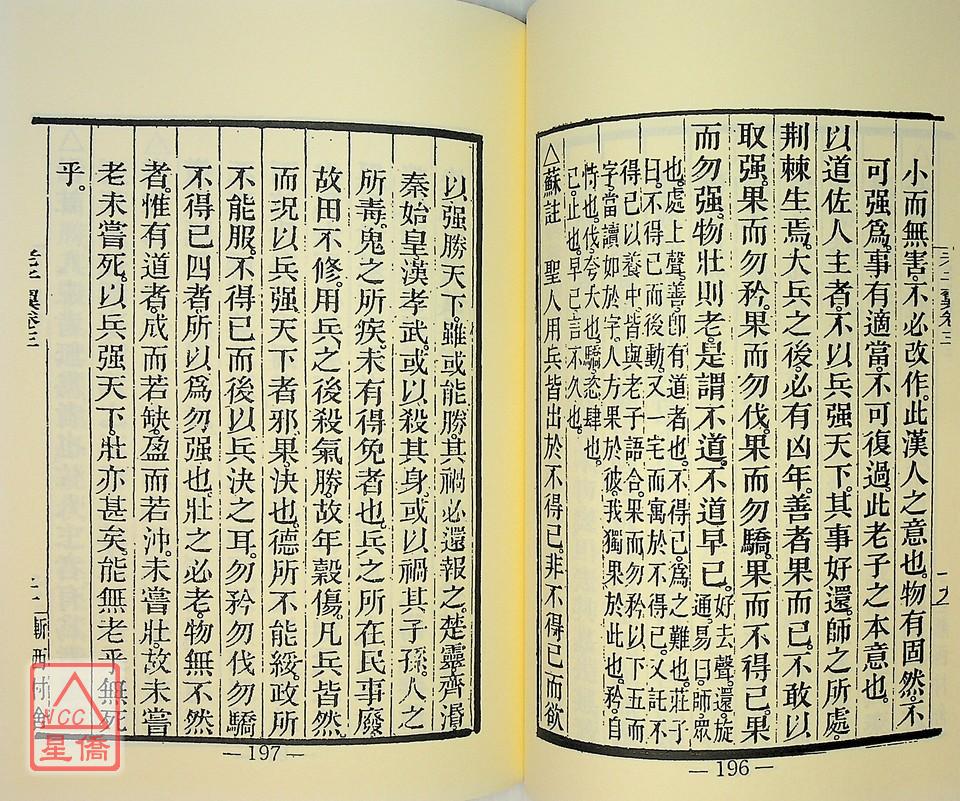 小而無害。不必改作。此漢人之意也。物有固然。不
可强爲。事有適當。不可復過。此老子之本意也。
以道佐人主者。不以兵强天下。其事好還。師之所處。
荆棘生焉。大兵之後。必有凶年。善者果而已。不敢以
取强。果而勿矜。果而勿伐。果而勿驕。果而不得已。果
而勿强。物壯則老。是謂不道。不道早已。好去聲。還。旋
通。易曰。師。衆
也。處上聲。善。卽有道者也。不得已。爲之難也。莊子
曰。不得已而後動。又一宅而寓於不得已。又託不
得已以養中。皆與老子語合。果而勿矜以下五而
字。當讀如於字。人方果於彼。我獨果於此也。矜。自
恃也。伐。夸大也。驕。恣肆也。
已。止也。早已。言不久也。
△蘇註 聖人用兵皆出於不得已。非不得已而欲
老子翼卷三
十九
—196—
以强勝天下。雖或能勝。其禍必還報之。楚靈齊湣。
秦始皇。漢孝武。或以殺其身。或以禍其子孫。人之
所毒。鬼之所疾。未有得免者也。兵之所在。民事廢
故田不修。用兵之後。殺氣勝。故年穀傷。凡兵皆然。
而况以兵强天下者邪。果。决也。德所不能綏。政所
不能服。不得已而後以兵决之耳。勿矜勿伐勿驕
不得已四者。所以爲勿强也。壯之必老。物無不然
者。惟有道者。成而若缺。盈而若沖。未嘗壯。故未嘗
老未嘗死。以兵强天下。壯亦甚矣。能無老乎。無死
乎。
老子翼卷三
二十
漸西村舍
—197—
NCC
星僑